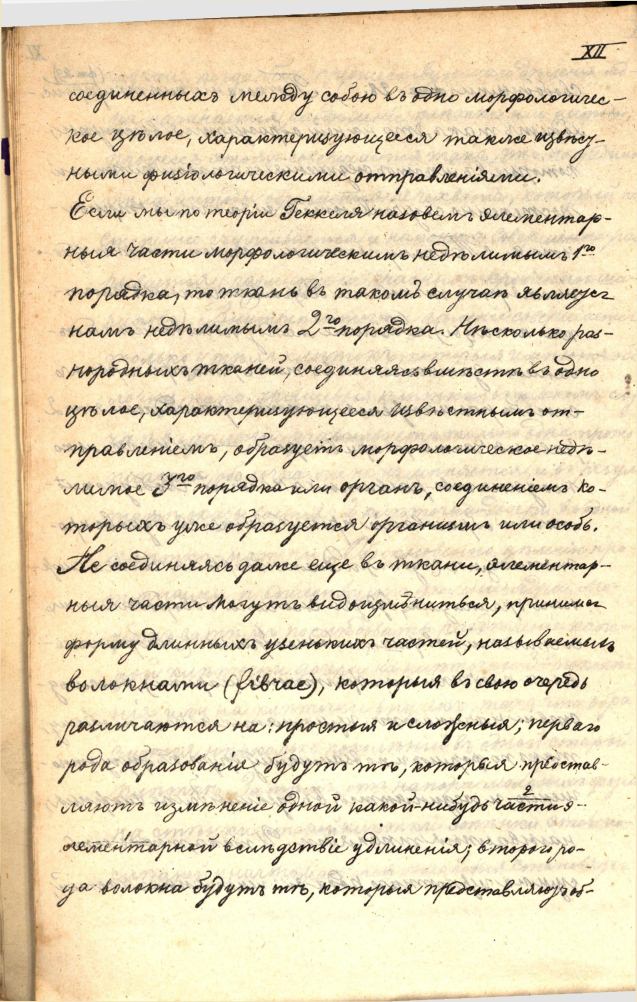 XII
соединенныхъ между собою въ одно морфологичес-
кое цѣлое, характеризующееся также извѣст-
ными физіологическими отправленіями.
Если мы по теоріи Геккеля назовемъ элементар-
ныя части морфологическимъ недѣлимымъ 1го
порядка, то ткань въ такомъ случаѣ является
намъ недѣлимымъ 2го порядка. Нѣсколько раз-
нородныхъ тканей, соединяясь вмѣстѣ въ одно
цѣлое, характеризующееся извѣстнымъ от-
правленіемъ, образуетъ морфологическое недѣ-
лимое 3го порядка или органъ, соединеніемъ ко-
торыхъ уже образуется организмъ или особь.
Не соединяясь даже еще въ ткани, элементар-
ныя части могутъ видоизмѣниться, принимая
форму длинныхъ узенькихъ частей, называемыхъ
волокнами (fibrae), которыя въ свою очередь
различаются на: простыя и сложныя; перваго
рода образованія будутъ тѣ, которыя представ-
ляютъ измѣненіе одной какой-нибудь части э-
лементарной вслѣдствіе удлиненія; второго ро-
да волокна будутъ тѣ, которыя представляютъ об-